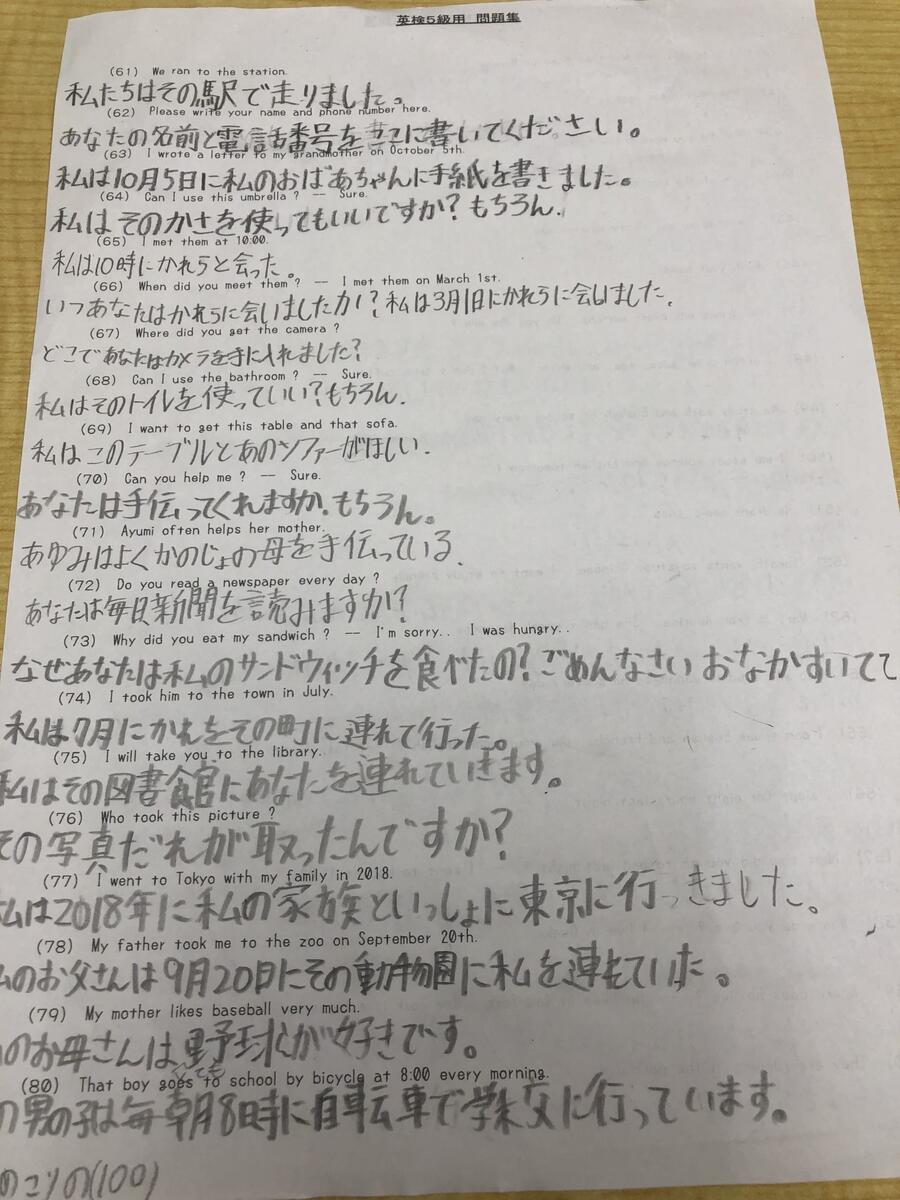 英検５級用　問題集
(61)　We ran to the station.
私たちはその駅で走りました。
(62)　Please write your name and phone number here.
あなたの名前と電話番号を に書いてください。
(63)　I wrote a letter to my grandmother on October 5th.
私は10月5日に私のおばあちゃんに手紙を書きました。
(64)　Can I use this umbrella ?　--　Sure.
私はそのかさを使ってもいいですか?もちろん.
(65)　I met them at 10:00.
私は10時にかれらと会った。
(66)　When did you meet them ?　--　I met them on March 1st.
いつあなたはかれらに会いましたか!?私は3月1日にかれらに会いました.
(67)　Where did you get the camera ?
どこであなたはカメラを手に入れました?
(68)　Can I use the bathroom ?　--　Sure.
私はそのトイレを使っていい?もちろん.
(69)　I want to get this table and that sofa.
私はこのテーブルとあのソファーがほしい.
(70)　Can you help me ?　--　Sure.
あなたは手伝ってくれますか.もちろん。
(71)　Ayumi often helps her mother.
あゆみはよくかのじょの母を手伝っている.
(72)　Do you read a newspaper every day ?
あなたは毎日新聞を読みますか?
(73)　Why did you eat my sandwich ?　--　I'm sorry..　I was hungry..
なぜあなたは私のサンドウィッチを食べたの?ごめんなさい おなかすいてて
(74)　I took him to the town in July.
私は7月にかれをその町に連れて行った。
(75)　I will take you to the library.
私はその図書館にあなたを連れていきます。
(76)　Who took this picture ?
その写真だれが取ったんですか?
(77)　I went to Tokyo with my family in 2018.
私は2018年に私の家族といっしょに東京に行っきました。
(78)　My father took me to the zoo on September 20th.
私のお父さんは9月20日にその動物園に私を連れていた。
(79)　My mother likes baseball very much.
のお母さんは野球が好きです。
とても
(80)　That boy goes to school by bicycle at 8:00 every morning.
の男の子は毎朝8時に自転車で学校に行っています。
のこりの(100)